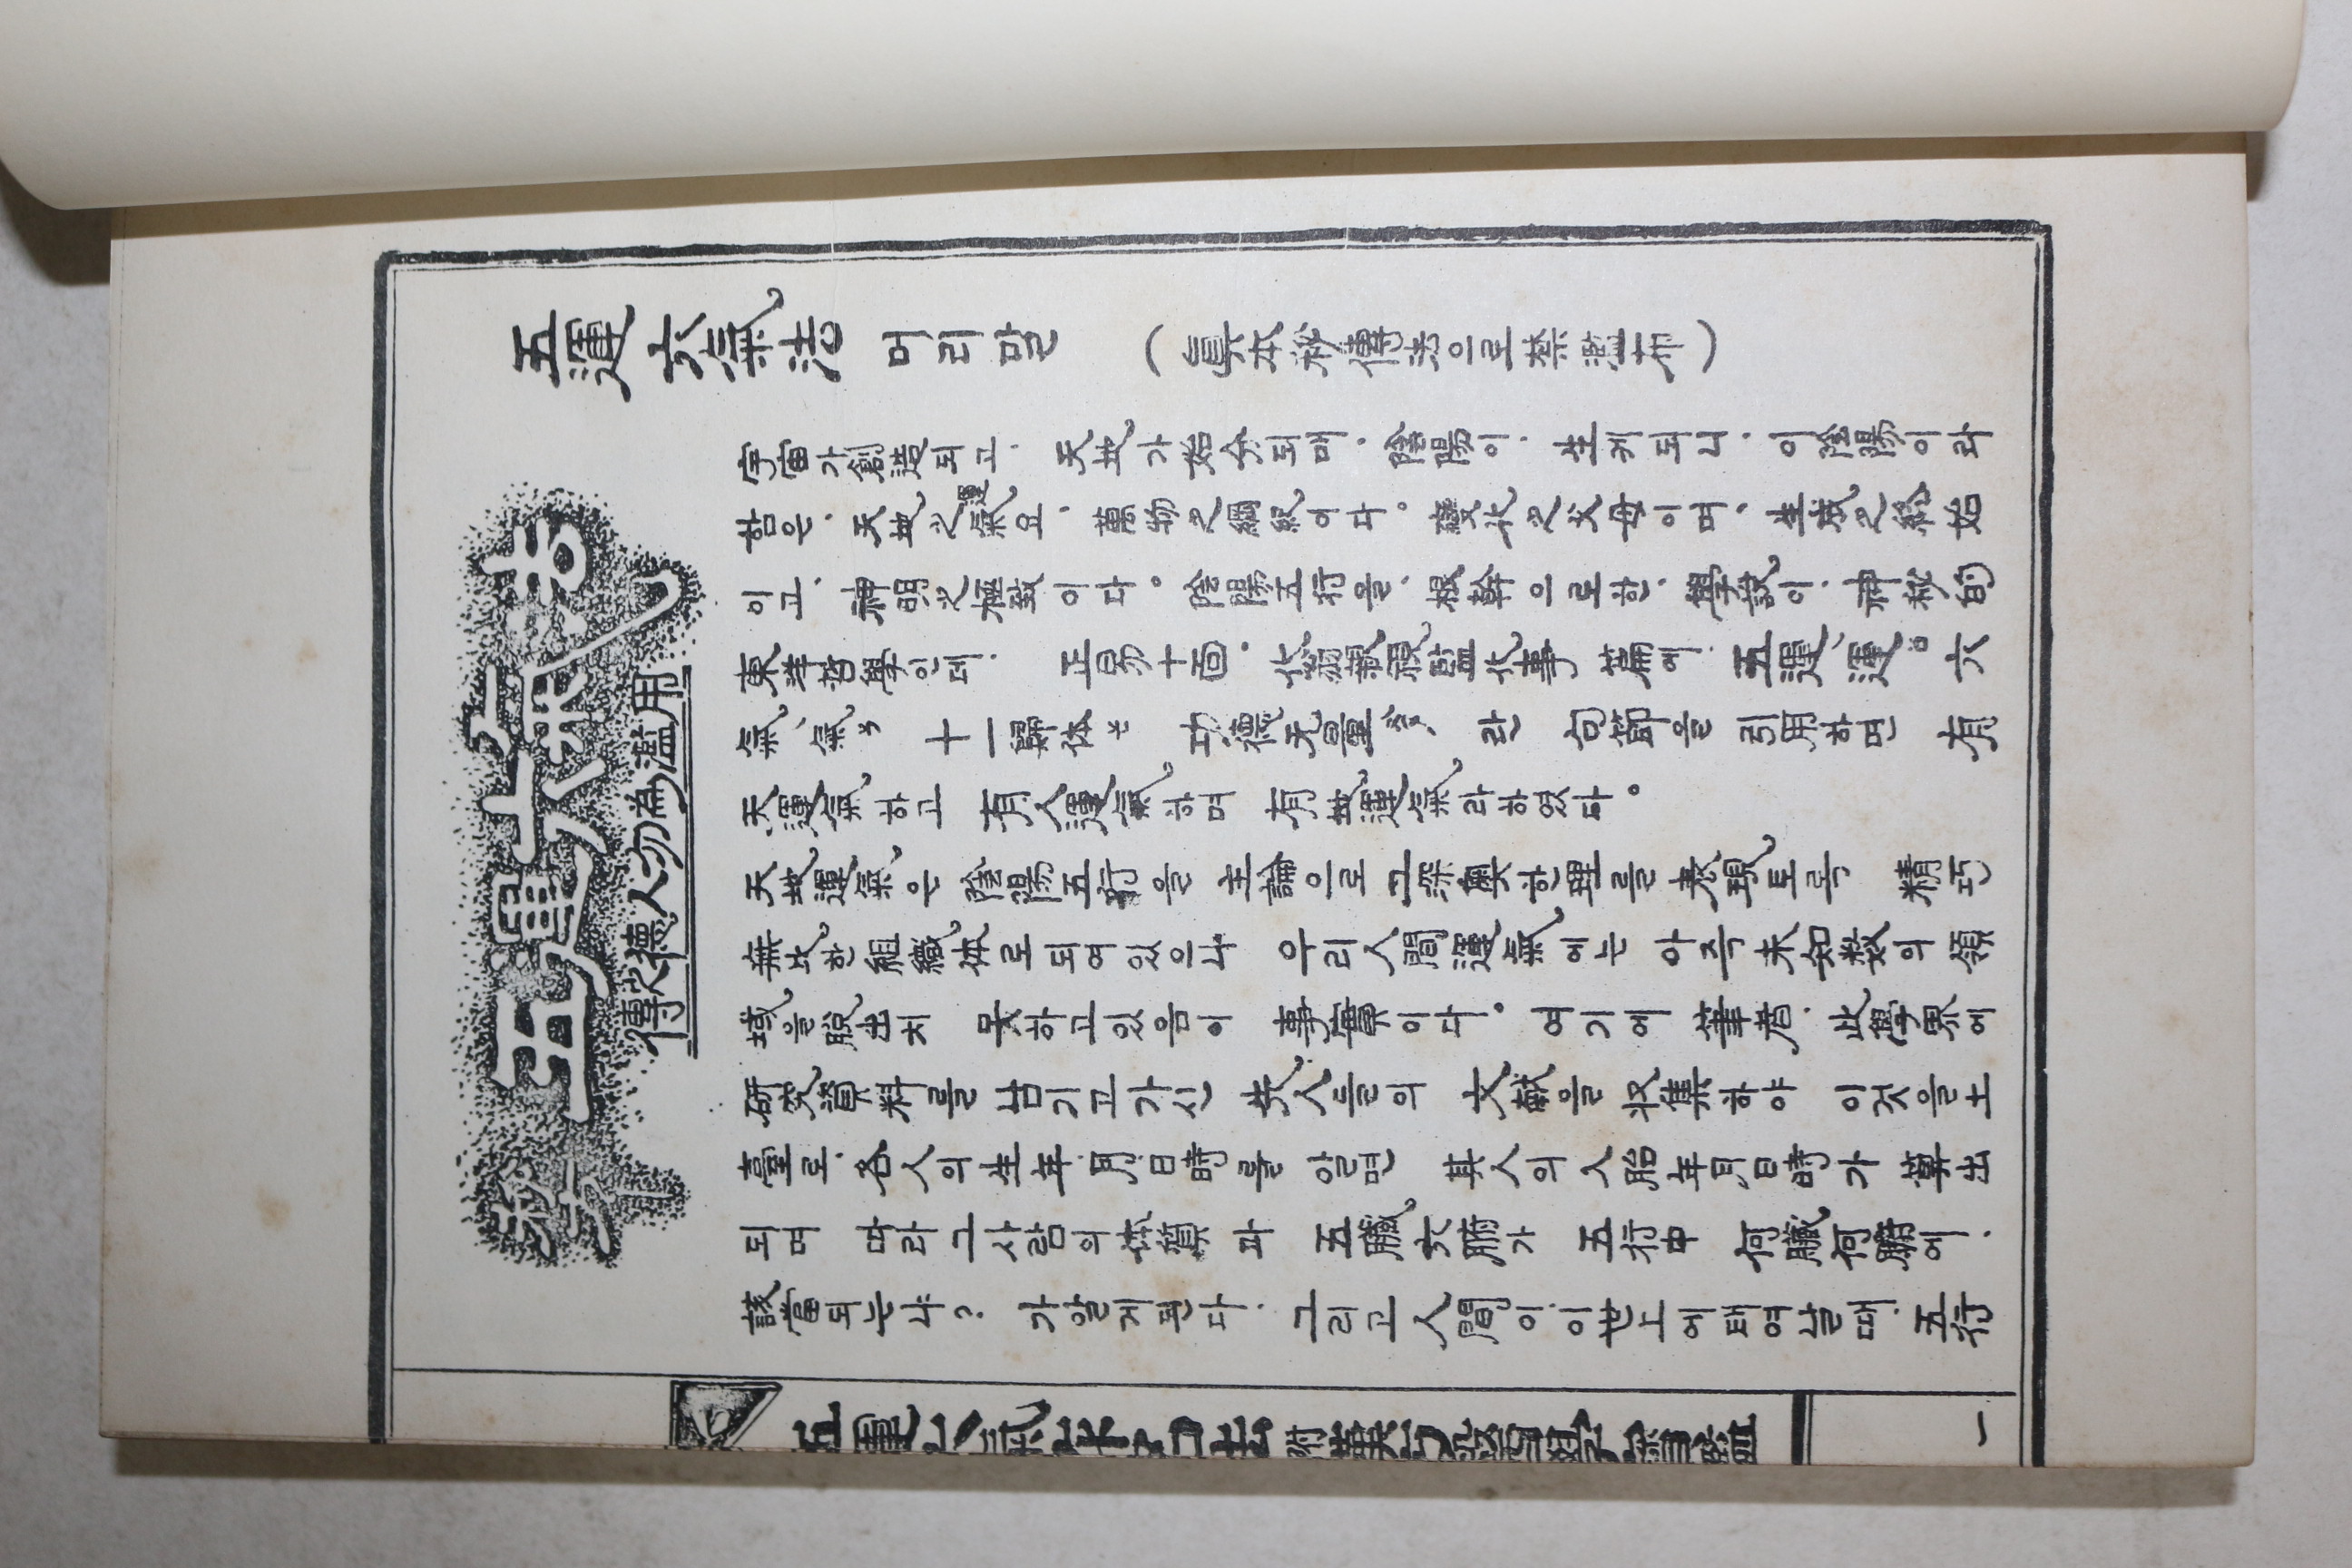 五運六氣法 머리말 (眞本秘傳法으로 禁濫布)
秘方 五運六氣法
傳之德人勿為濫用
宇宙가創造되고. 天地가始分되매. 陰陽이. 生케되니. 이陰陽이라
함은. 天地之運氣요. 萬物之綱紀이다. 變化之父母이며. 生成之終始
이고. 神明之極致이다. 陰陽五行을. 根幹으로한. 學說이. 神秘的
東洋哲學인데. 正易十面. 化翁親視監化事 篇에. 五運、運。六
氣、氣。 十一歸体는 功德无量、란 句節을 引用하면 有
天運氣하고 有人運氣하며 有地運氣라하였다。
天地運氣은 陰陽五行을 主論으로 그深奧한理를表現토록 精巧
無比한組織体로되여있으나 우리人間運氣에는 아즉未知数의領
域을脫出치 못하고있음이 事實이다. 여기에 筆者. 此學界에
研究資料를남기고가신 先人들의 文献을収集하야 이것을土
臺로. 各人의生年.月.日時를 알면 其人의入胎年月日時가 算出
되며 따라그사람의体質과 五臟六腑가 五行中 何臟何腑에.
該當되는냐? 가알게된다. 그리고人間이.이世上에태여날때.五行
五運六氣 法 附漢方醫學寶鑑
一